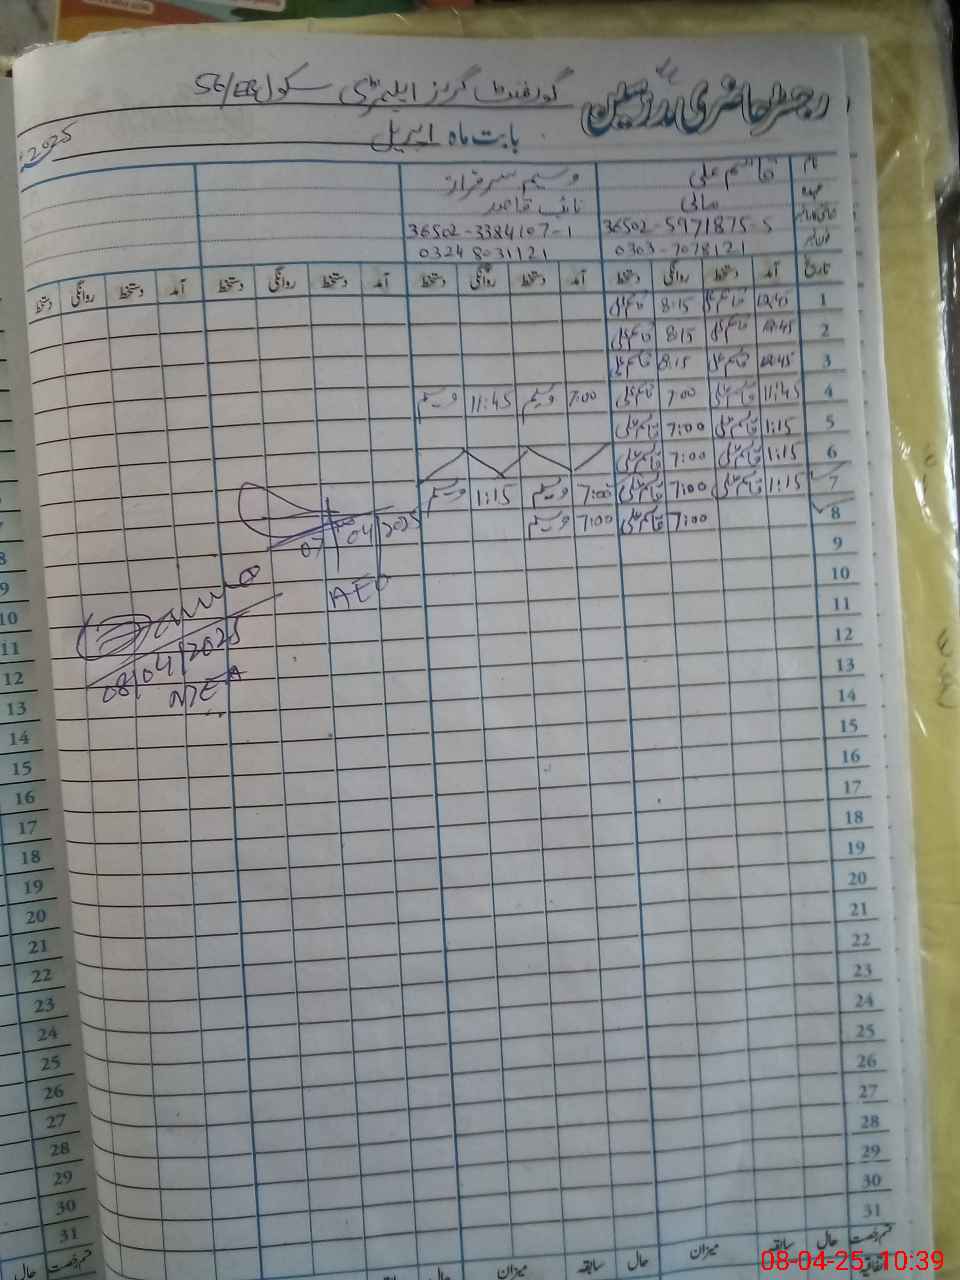 رجسٹر حاضری مدرسین گورنمنٹ گرلز ایلیمنٹری سکول 56/EB
بابت ماہ اپریل 2025
نام قاسم علی وسیم سرفراز
عہدہ مالی نائب قاصد
شناختی کارڈ نمبر 36502-5971875-5 36502-3384107-1
فون نمبر 0303-7078121 0324 8031121
تاریخ آمد دستخط روانگی دستخط آمد دستخط روانگی دستخط آمد دستخط روانگی دستخط آمد دستخط روانگی دستخط
1 قاسم علی 8:15 قاسم علی
2 قاسم علی 8:15 قاسم علی
3 قاسم علی 8:15 قاسم علی
4 11:45 قاسم علی 7:00 قاسم علی 7:00 وسیم 11:45 وسیم
5 1:15 قاسم علی 7:00 قاسم علی
6 1:15 قاسم علی 7:00 قاسم علی
7 1:15 قاسم علی 7:00 قاسم علی 7:00 وسیم 1:15 وسیم
8 7:00 قاسم علی 7:00 وسیم
07/04/2025
AEO
08/04/2025
MEA
9
10
11
12
13
14
15
16
17
18
19
20
21
22
23
24
25
26
27
28
29
30
31
قسم رخصت حال سابقہ میزان حال سابقہ میزان حال
اتفاقیہ
8
9
10
11
12
13
14
15
16
17
18
19
20
21
22
23
24
25
26
27
28
29
30
31
قسم رخصت حال
08-04-25 10:39